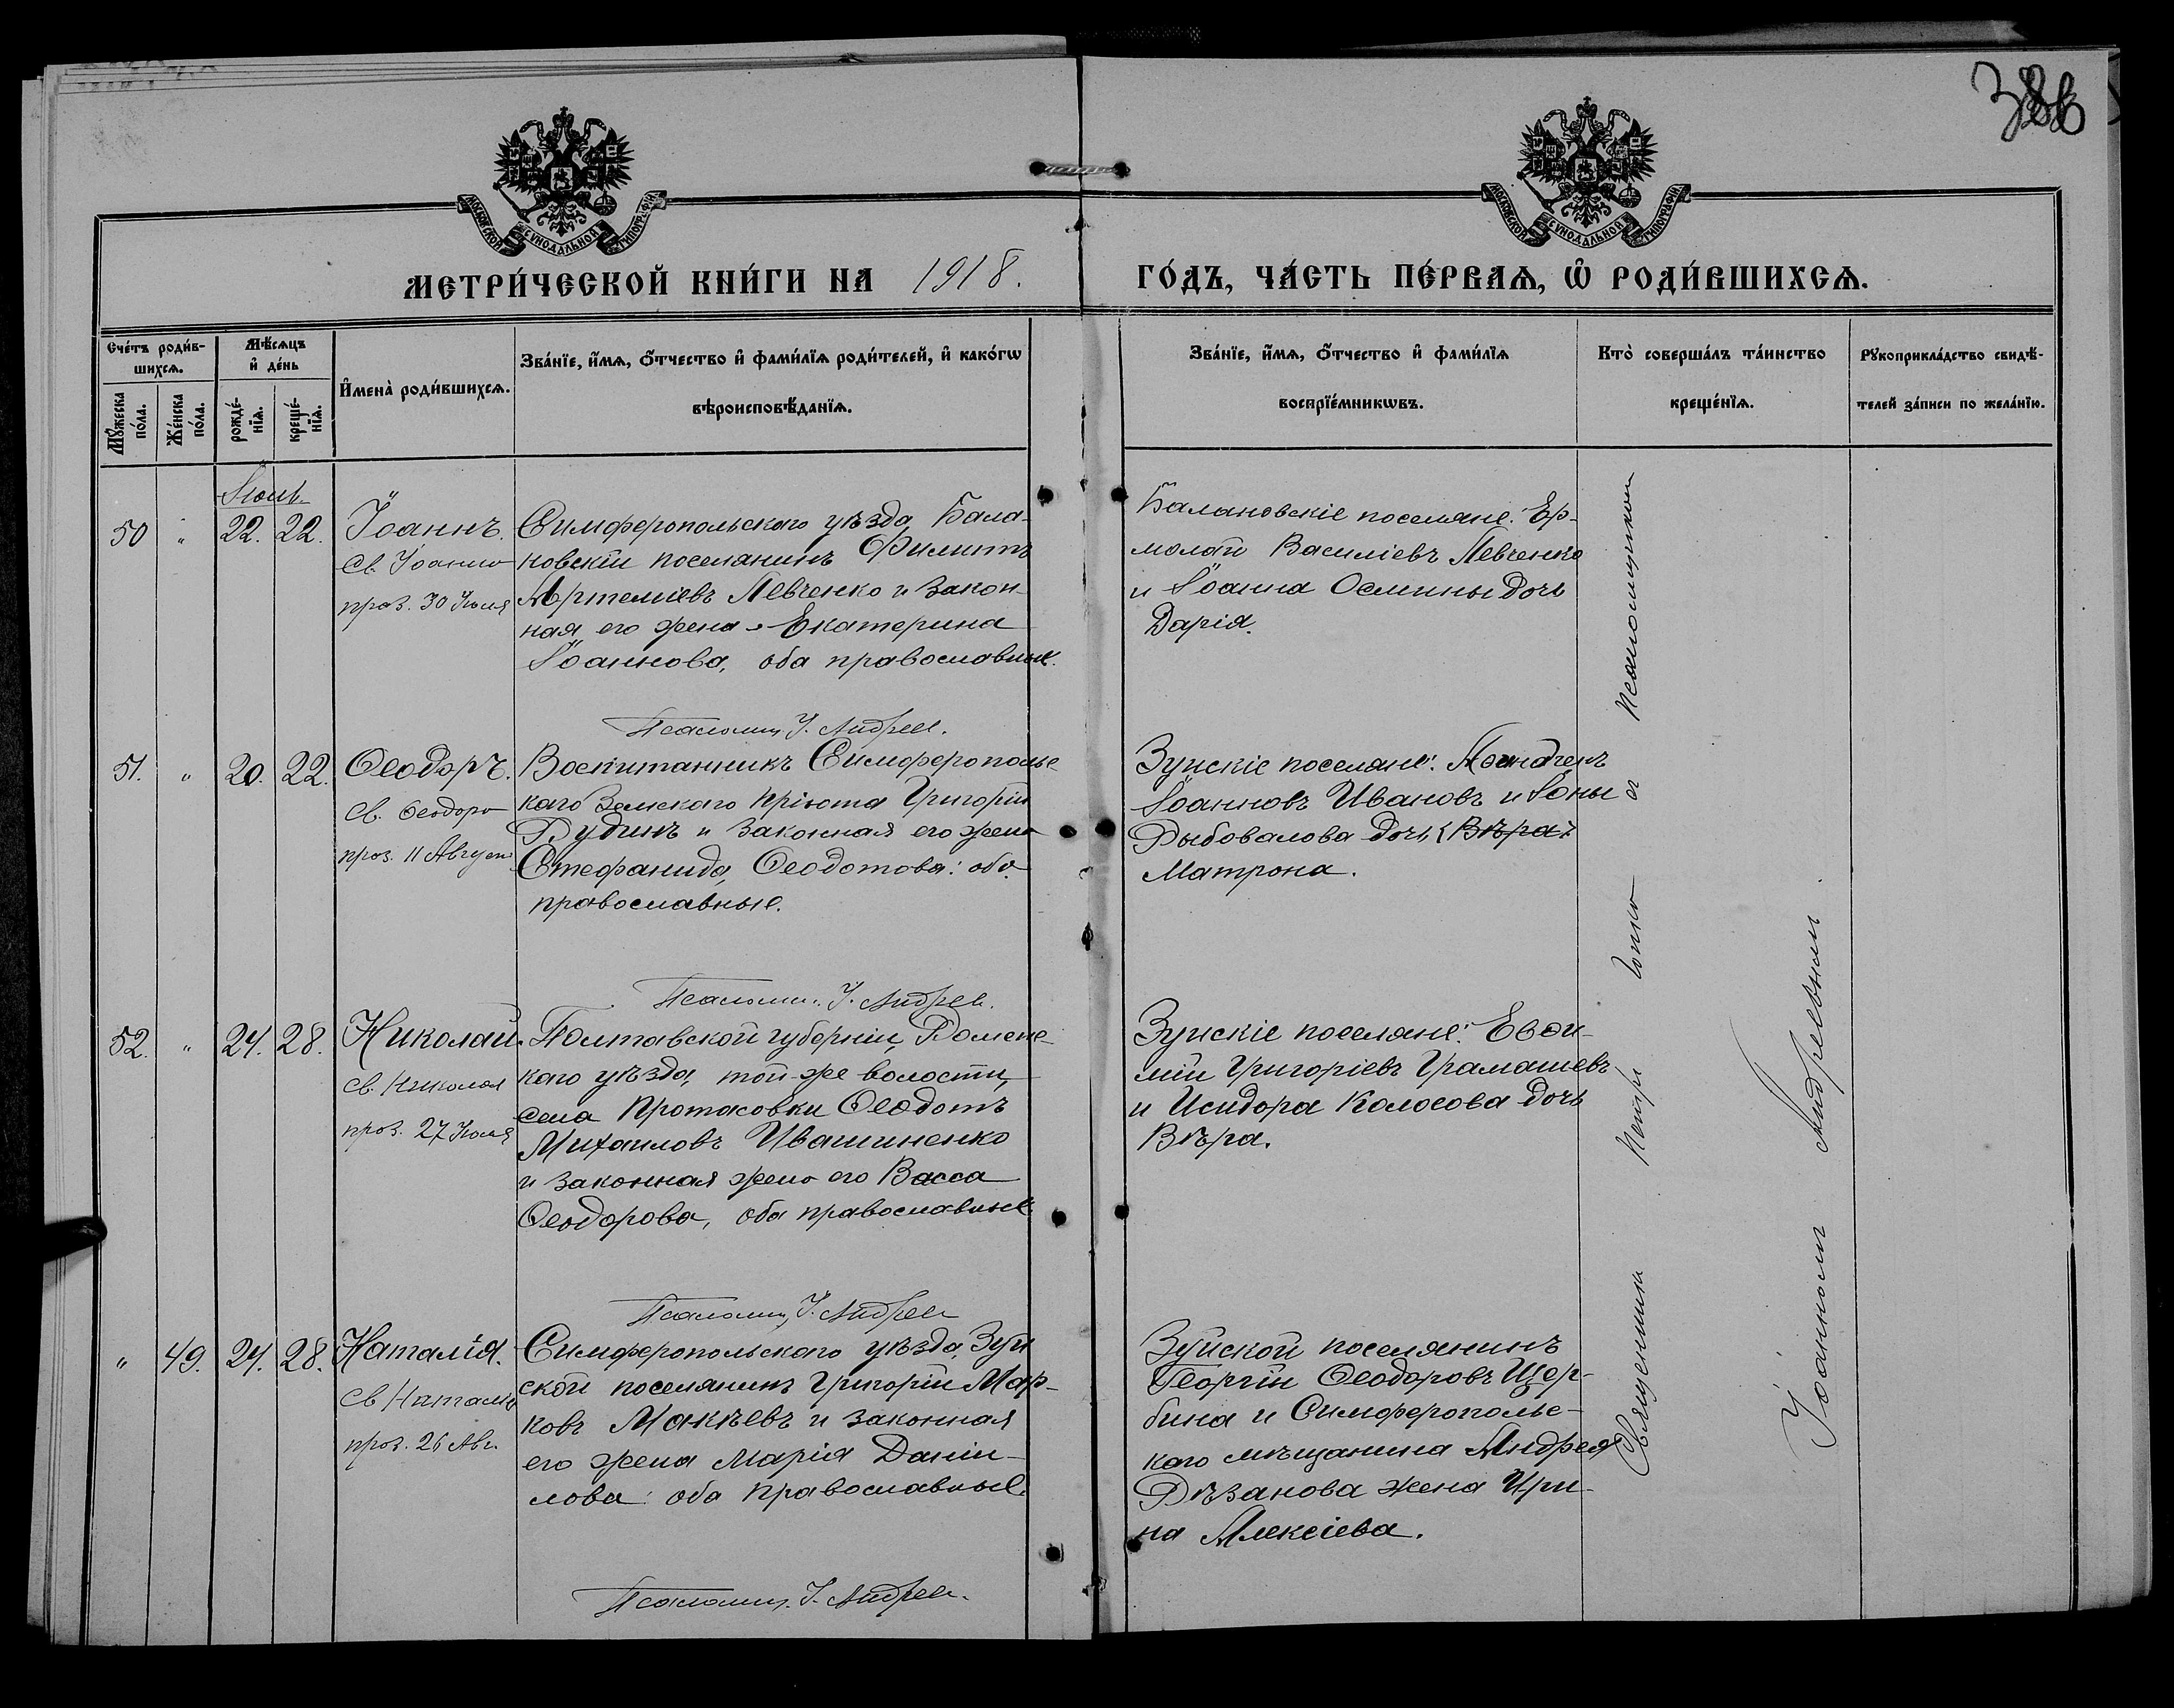 МОСКОВСКОЙ СѴНОДАЛЬНОЙ ТИПОГРАФІИ
МОСКОВСКОЙ СѴНОДАЛЬНОЙ ТИПОГРАФІИ
МЕТРИ́ЧЕСКОЙ КНИ́ГИ НА 1918. ГО́ДЪ, ЧА́СТЬ ПЕ́РВАѦ, Ѡ҆ РОДИ́ВШИХСѦ.
Сче́тъ роди́в-
шихсѧ.
Мꙋ́жеска по́ла.
Же́нска по́ла.
Мѣ́сѧцъ
и҆ де́нь
рожде́-
нїѧ.
креще́-
нїѧ.
И҆мена̀ роди́вшихсѧ.
Зва́нїе, и҆́мѧ, ѻ҆́тчество и҆ фами́лїѧ роди́телей, и҆ како́гѡ
вѣроисповѣ́данїѧ.
Зва́нїе, и҆́мѧ, ѻ҆́тчество и҆ фами́лїѧ
воспрїе́мникѡвъ.
Кто̀ соверша́лъ та́инство
креще́нїѧ.
Рꙋкоприкла́дство свидѣ́-
телей за́писи по жела́нїю.
50 " 22. 22.
Іоаннъ.
Св. Іоанна
праз. 30 Іюля
Симферопольскаго уѣзда, Бала-
новскій поселянинъ Филиппъ
Артеміевъ Левченко и закон-
ная его жена Екатерина
Іоаннова, оба православные.
Псаломщ. І. Андреев.
Балановскіе поселяне: Ер-
молай Василіевъ Левченко
и Іоанна Осмины дочь
Дарія.
51. " 20. 22.
Ѳеодоръ.
Св. Ѳеодора
праз. 11 Август
Воспитанникъ Симферополь-
каго Земскаго пріюта Григорій
Будинъ и законная его жена
Стефанида Ѳеодотова: оба
православные.
Псаломщ. І. Андреев.
Зуйскіе поселяне:
Іоанновъ Ивановъ и Іоны
Рыбовалова дочь {Вѣра}
Матрона.
52. " 24. 28.
Николай.
Св. Николая
праз. 27 Іюля
Полтавской губерніи, Роменс-
каго уѣзда, той-же волости,
села Протасовки Ѳеодотъ
Михаиловъ Ивашиненко
и законная жена его Васса
Ѳеодорова, оба православные.
Псаломщ. І. Андреев
Зуйскіе поселяне: Евѳи-
мій Григоріевъ Грамашевъ
и Исидора Колосова дочь
Вѣра.
" 49. 24. 28.
Наталія.
Св. Наталіи
праз. 26 Авг.
Симферопольскаго уѣзда, Зуй
ской поселянинъ Григорій Мар-
ковъ Макѣевъ и законная
его жена Марія Даніи-
лова: оба православные.
Псаломщ. І. Андреев.
Зуйской поселянинъ
Георгій Ѳеодоровъ Щер-
бина и Симферополь-
каго мѣщанина Андрея
Рѣзанова жена Ири-
на Алексіева.
Священникъ Петръ съ псаломщикомъ
Іоанномъ Андреевымъ.